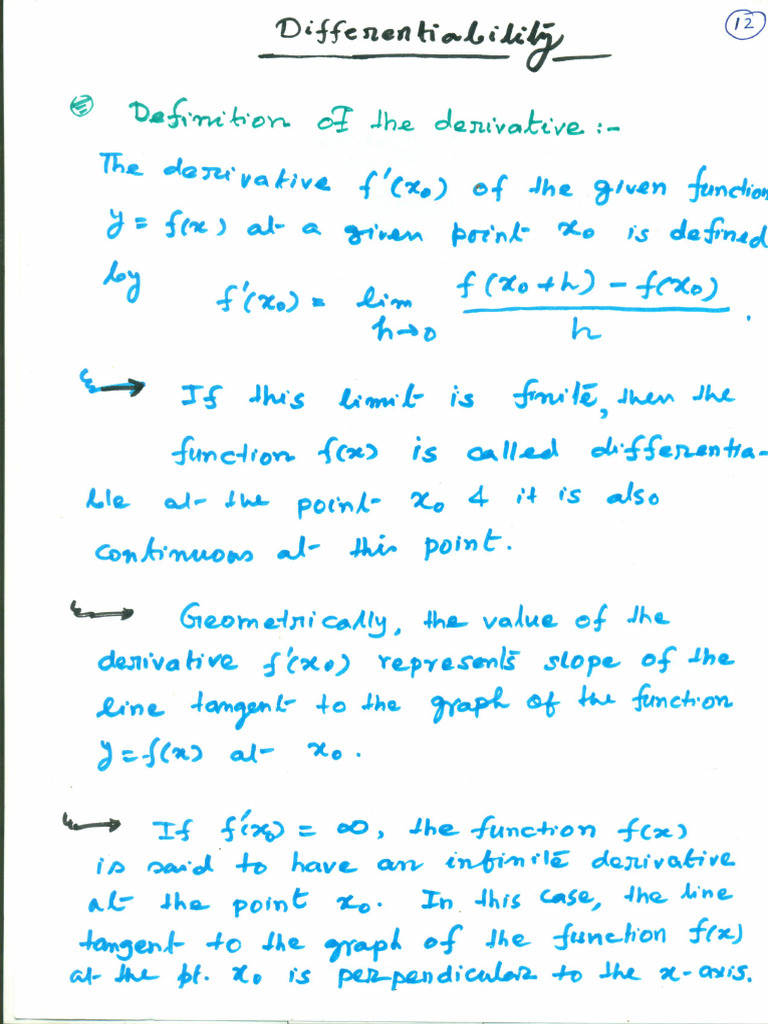 Differentiability
12
Definition of the derivative :-
The derivative f'(x₀) of the given function
y = f(x) at a given point x₀ is defined
by f'(x₀) = lim h→0 f(x₀+h) - f(x₀) / h .
If this limit is finite, then the
function f(x) is called differentia-
ble at the point x₀ & it is also
continuous at this point.
Geometrically, the value of the
derivative f'(x₀) represents slope of the
line tangent to the graph of the function
y = f(x) at x₀.
If f'(x₀) = ∞, the function f(x)
is said to have an infinite derivative
at the point x₀. In this case, the line
tangent to the graph of the function f(x)
at the pt. x₀ is perpendicular to the x-axis.